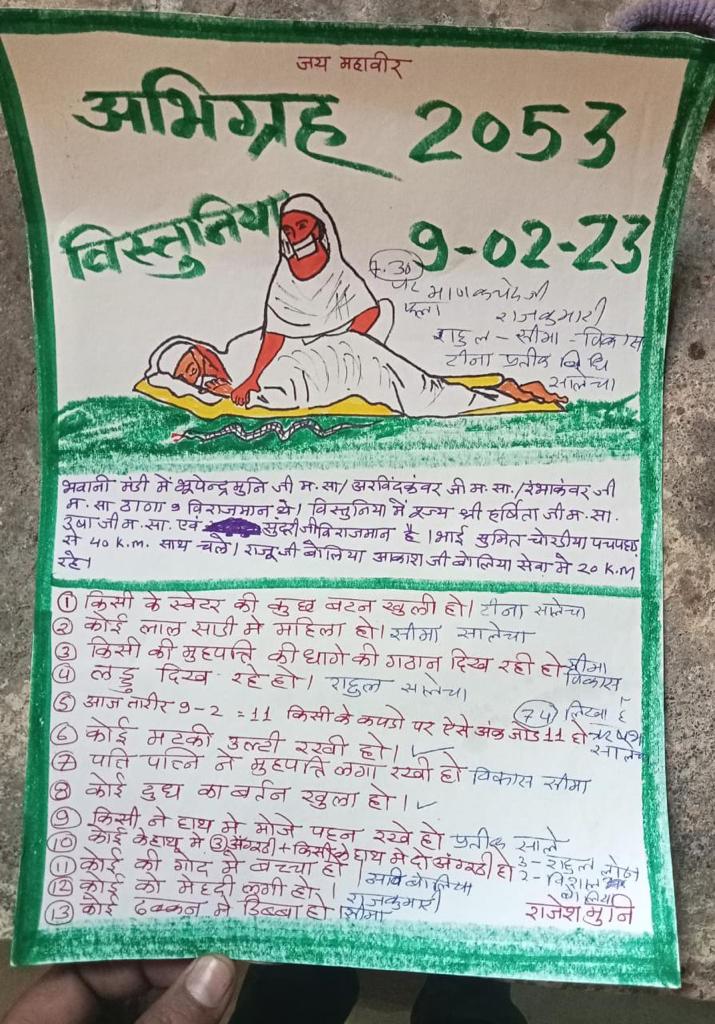 जय महावीर
अभिग्रह 2053
विस्तुनिया 9-02-23
7.30
पर माणकचंदजी
फला राजकुमारी
राहुल - सीमा - विकास
टीना प्रतीक विधि
सालेचा
भवानी मंडी में भूपेन्द्र मुनि जी म.सा/ अरविंदकंवर जी म.सा./रंभाकंवर जी
म.सा ठाणा 9 विराजमान थे। विस्तुनिया मे पूज्य श्री हर्षिता जी म.सा.
उषा जी म.सा. एवं सुदर्शनजी विराजमान है। भाई सुमित चोरडीया पचपहाड़
से 40 K.m. साथ चले। राजू जी बोलिया आकाश जी बोलिया सेवा मे 20 K.m
रहे।
① किसी के स्वेटर की कुछ बटन खुली हो। टीना सालेचा
② कोई लाल साडी मे महिला हो। सीमा सालेचा
③ किसी की मुहपति की धागे की गठान दिख रही हो सीमा विकास
④ लड्डू दिख रहे हो। राहुल सालेचा
⑤ आज तारीर 9-2 = 11 किसी के कपडो पर ऐसे अंक जोड 11 हो 74 लिखा है सालेचा
⑥ कोई मटकी उल्टी रखी हो। ✓
⑦ पति पत्नि ने मुहपति लगा रखी हो विकास सीमा
⑧ कोई दुध का बर्तन खुला हो। ✓
⑨ किसी ने हाथ मे मोजे पहन रखे हो प्रतीक साले
⑩ कोई के हाथ मे ③ अंगुठी + किसी के हाथ मे दो अंगुठी हो 3 - राहुल 2 - विशाल बोलिया
⑪ कोई की गोद मे बच्चा हो। बोलिया
⑫ कोई को मेहदी लगी हो। राजकुमारी
⑬ कोई ढक्कन मे डिब्बा हो सीमा
राजेश मुनि